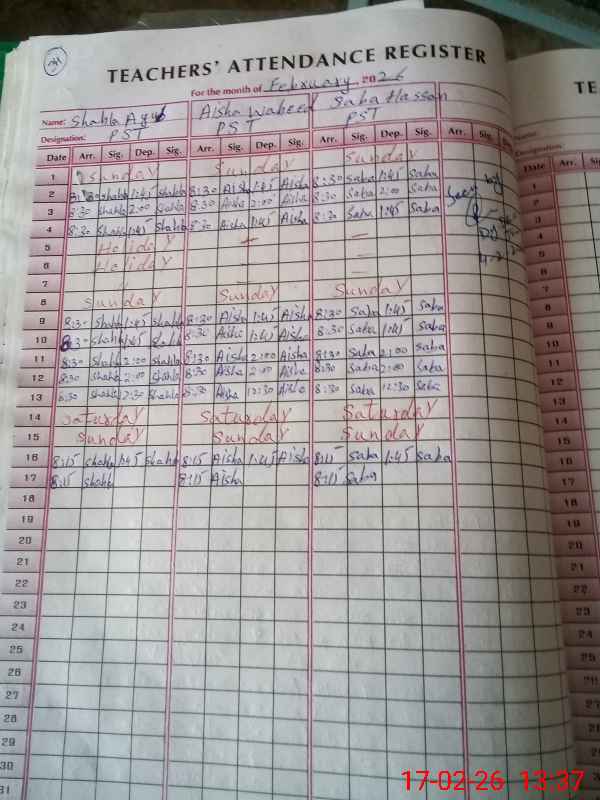 TEACHERS' ATTENDANCE REGISTER
For the month of February 2026
Name: Shahla Ayub Aisha Waheed Saba Hassan
Designation: PST PST PST
Date Arr. Sig. Dep. Sig. Arr. Sig. Dep. Sig. Arr. Sig. Dep. Sig. Arr. Sig. Dep.
1 Sunday Sunday Sunday
2 8:30 shahla 1:45 shahla 8:30 Aisha 1:45 Aisha 8:30 Saba 1:45 Saba
3 8:30 shahla 2:00 shahla 8:30 Aisha 2:00 Aisha 8:30 Saba 2:00 Saba
4 8:30 shahla 1:45 Shahla 8:30 Aisha 1:45 Aisha 8:30 Saba 1:45 Saba
5 Holiday —
6 Holiday —
7
8 Sunday Sunday Sunday
9 8:30 shahla 1:45 shahla 8:30 Aisha 1:45 Aisha 8:30 Saba 1:45 Saba
10 8:30 shahla 1:45 shahla 8:30 Aisha 1:45 Aisha 8:30 Saba 1:45 Saba
11 8:30 shahla 2:00 shahla 8:30 Aisha 2:00 Aisha 8:30 Saba 2:00 Saba
12 8:30 shahla 2:00 shahla 8:30 Aisha 2:00 Aisha 8:30 Saba 2:00 Saba
13 8:30 shahla 12:30 shahla 8:30 Aisha 12:30 Aisha 8:30 Saba 12:30 Saba
14 Saturday Saturday Saturday
15 Sunday Sunday Sunday
16 8:15 shahla 1:45 shahla 8:15 Aisha 1:45 Aisha 8:15 Saba 1:45 Saba
17 8:15 shahla 8:15 Aisha 8:15 Saba
18
19
20
21
22
23
24
25
26
27
28
29
30
31
TE
Name:
Designation:
Date Arr. Si
1
2
3
4
5
6
7
8
9
10
11
12
13
14
15
16
17
18
19
20
21
22
23
24
25
26
27
28
29
30
17-02-26 13:37